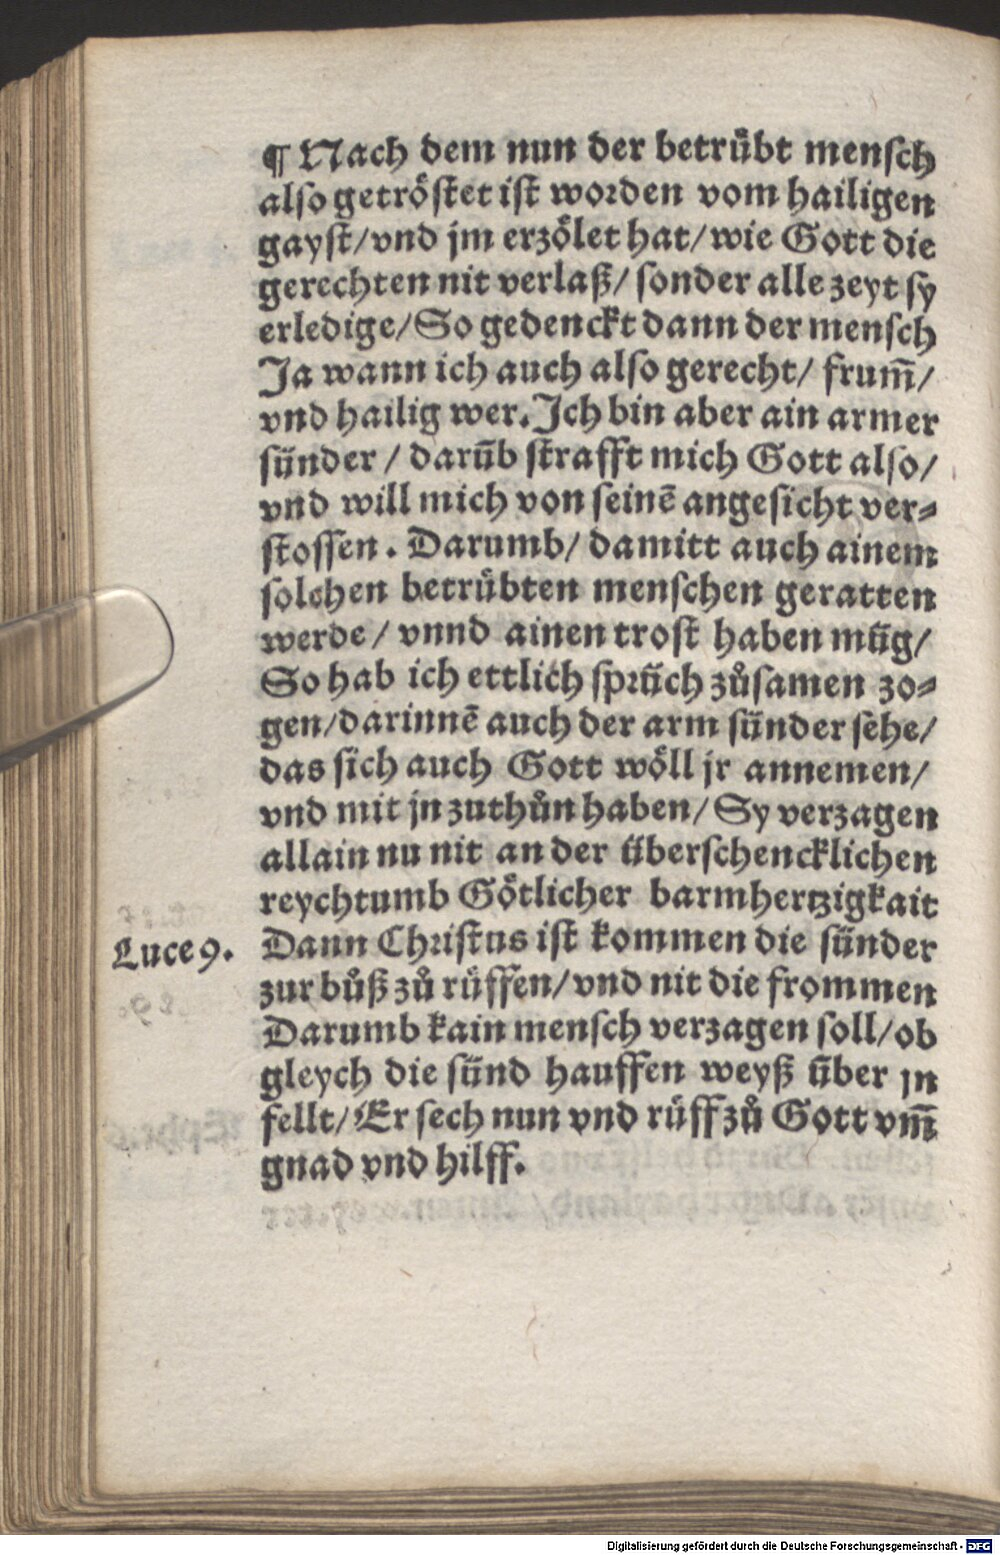 ¶ Nach dem nun der betruͤbt mensch
also getroͤstet ist worden vom hailigen
gayst/vnd jm erzoͤlet hat/wie Gott die
gerechten nit verlaß/ sonder alle zeyt sy
erledige/So gedenckt dann der mensch
Ja wann ich auch also gerecht/ frum̃/
vnd hailig wer. Ich bin aber ain armer
sünder / darũb strafft mich Gott also/
vnd will mich von seinẽ angesicht ver⸗
stossen. Darumb/ damitt auch ainem
solchen betruͤbten menschen geratten
werde/ vnnd ainen trost haben müg/
So hab ich ettlich sprüch zuͦsamen zo⸗
gen/darinnẽ auch der arm sünder sehe/
das sich auch Gott woͤll jr annemen/
vnd mit jn zuthuͦn haben/ Sy verzagen
allain nu nit an der überschencklichen
reychtumb Goͤtlicher barmhertzigkait
Luce 9. Dann Christus ist kommen die sünder
zur buͦß zuͦ ruͤffen/vnd nit die frommen
Darumb kain mensch verzagen soll/ob
gleych die sünd hauffen weyß über jn
fellt/ Er sech nun vnd ruͤff zuͦ Gott vm̃
gnad vnd hilff.
Digitalisierung gefördert durch die Deutsche Forschungsgemeinschaft - DFG